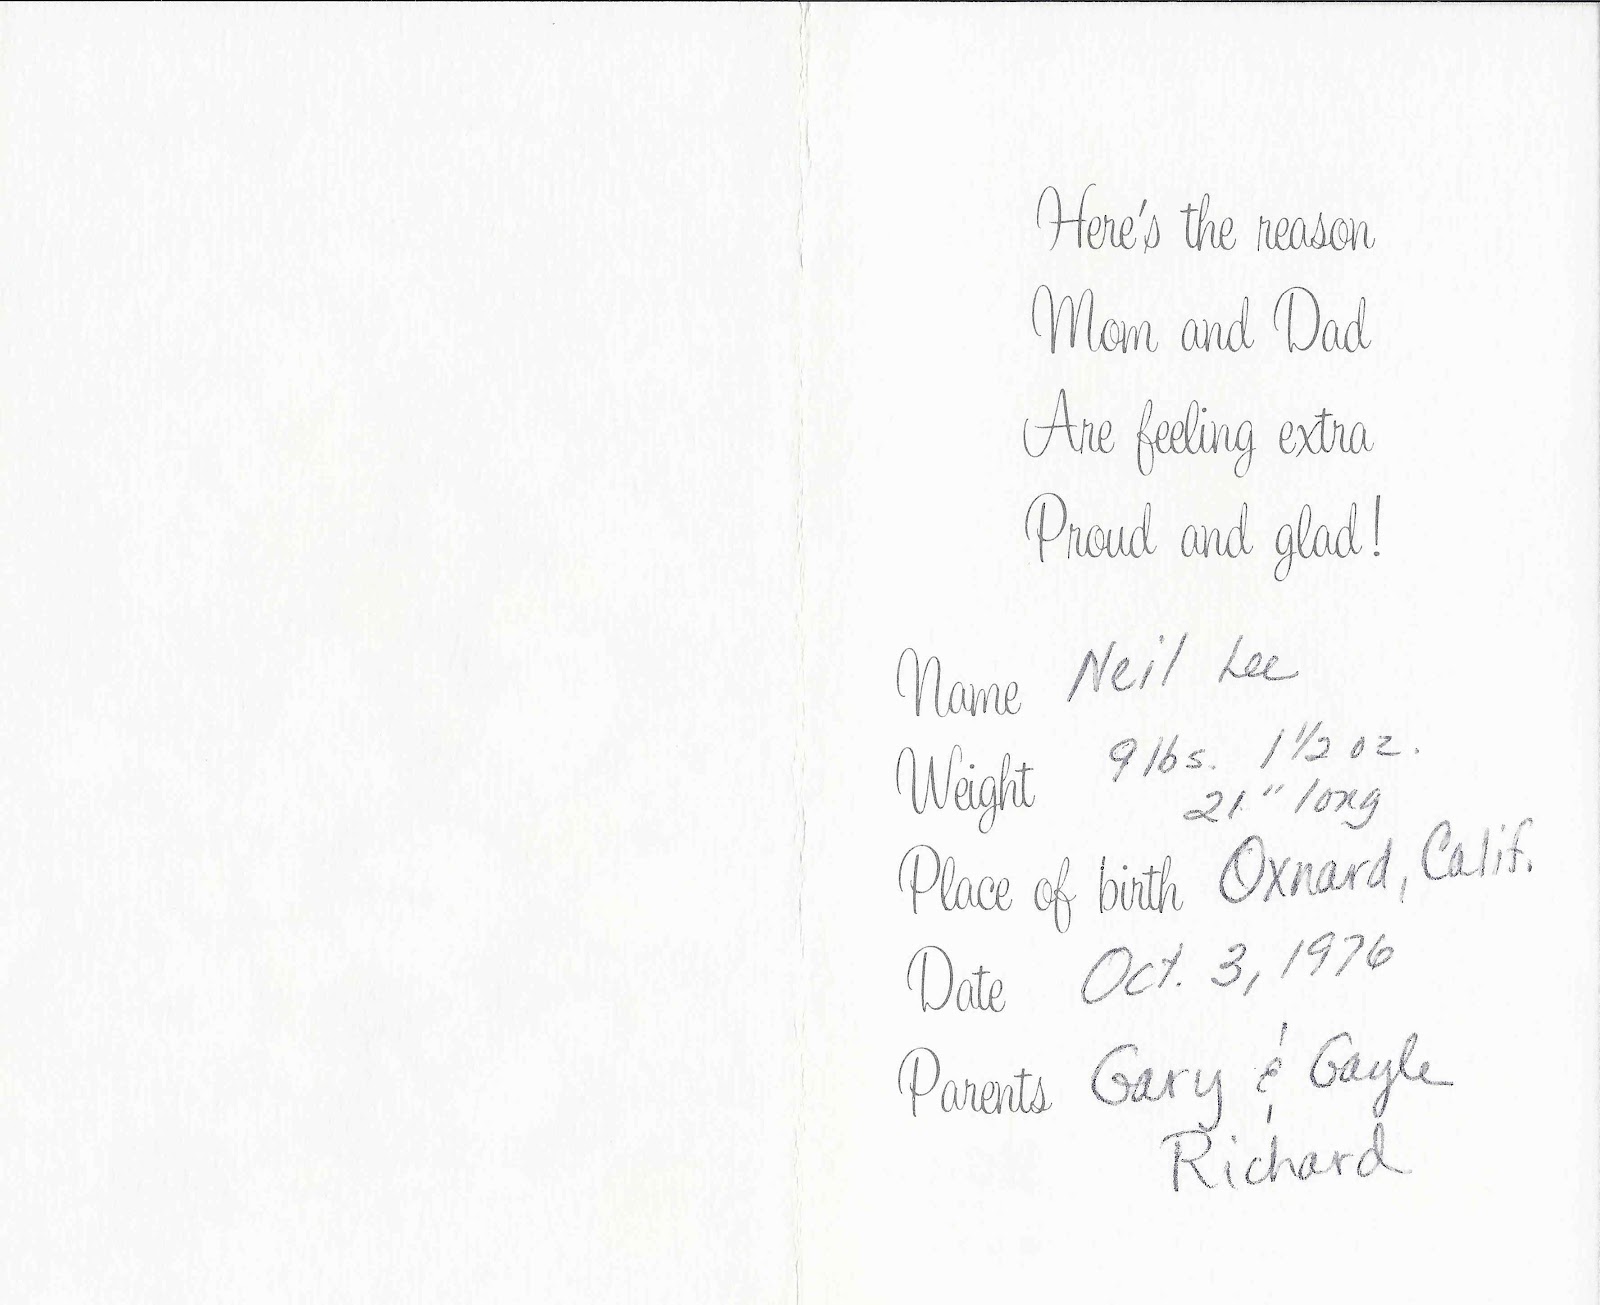 Here's the reason
Mom and Dad
Are feeling extra
Proud and glad!
Name Neil Lee
Weight 9 lbs. 1 1/2 oz.
21" long
Place of birth Oxnard, Calif.
Date Oct. 3, 1976
Parents Gary & Gayle
Richard